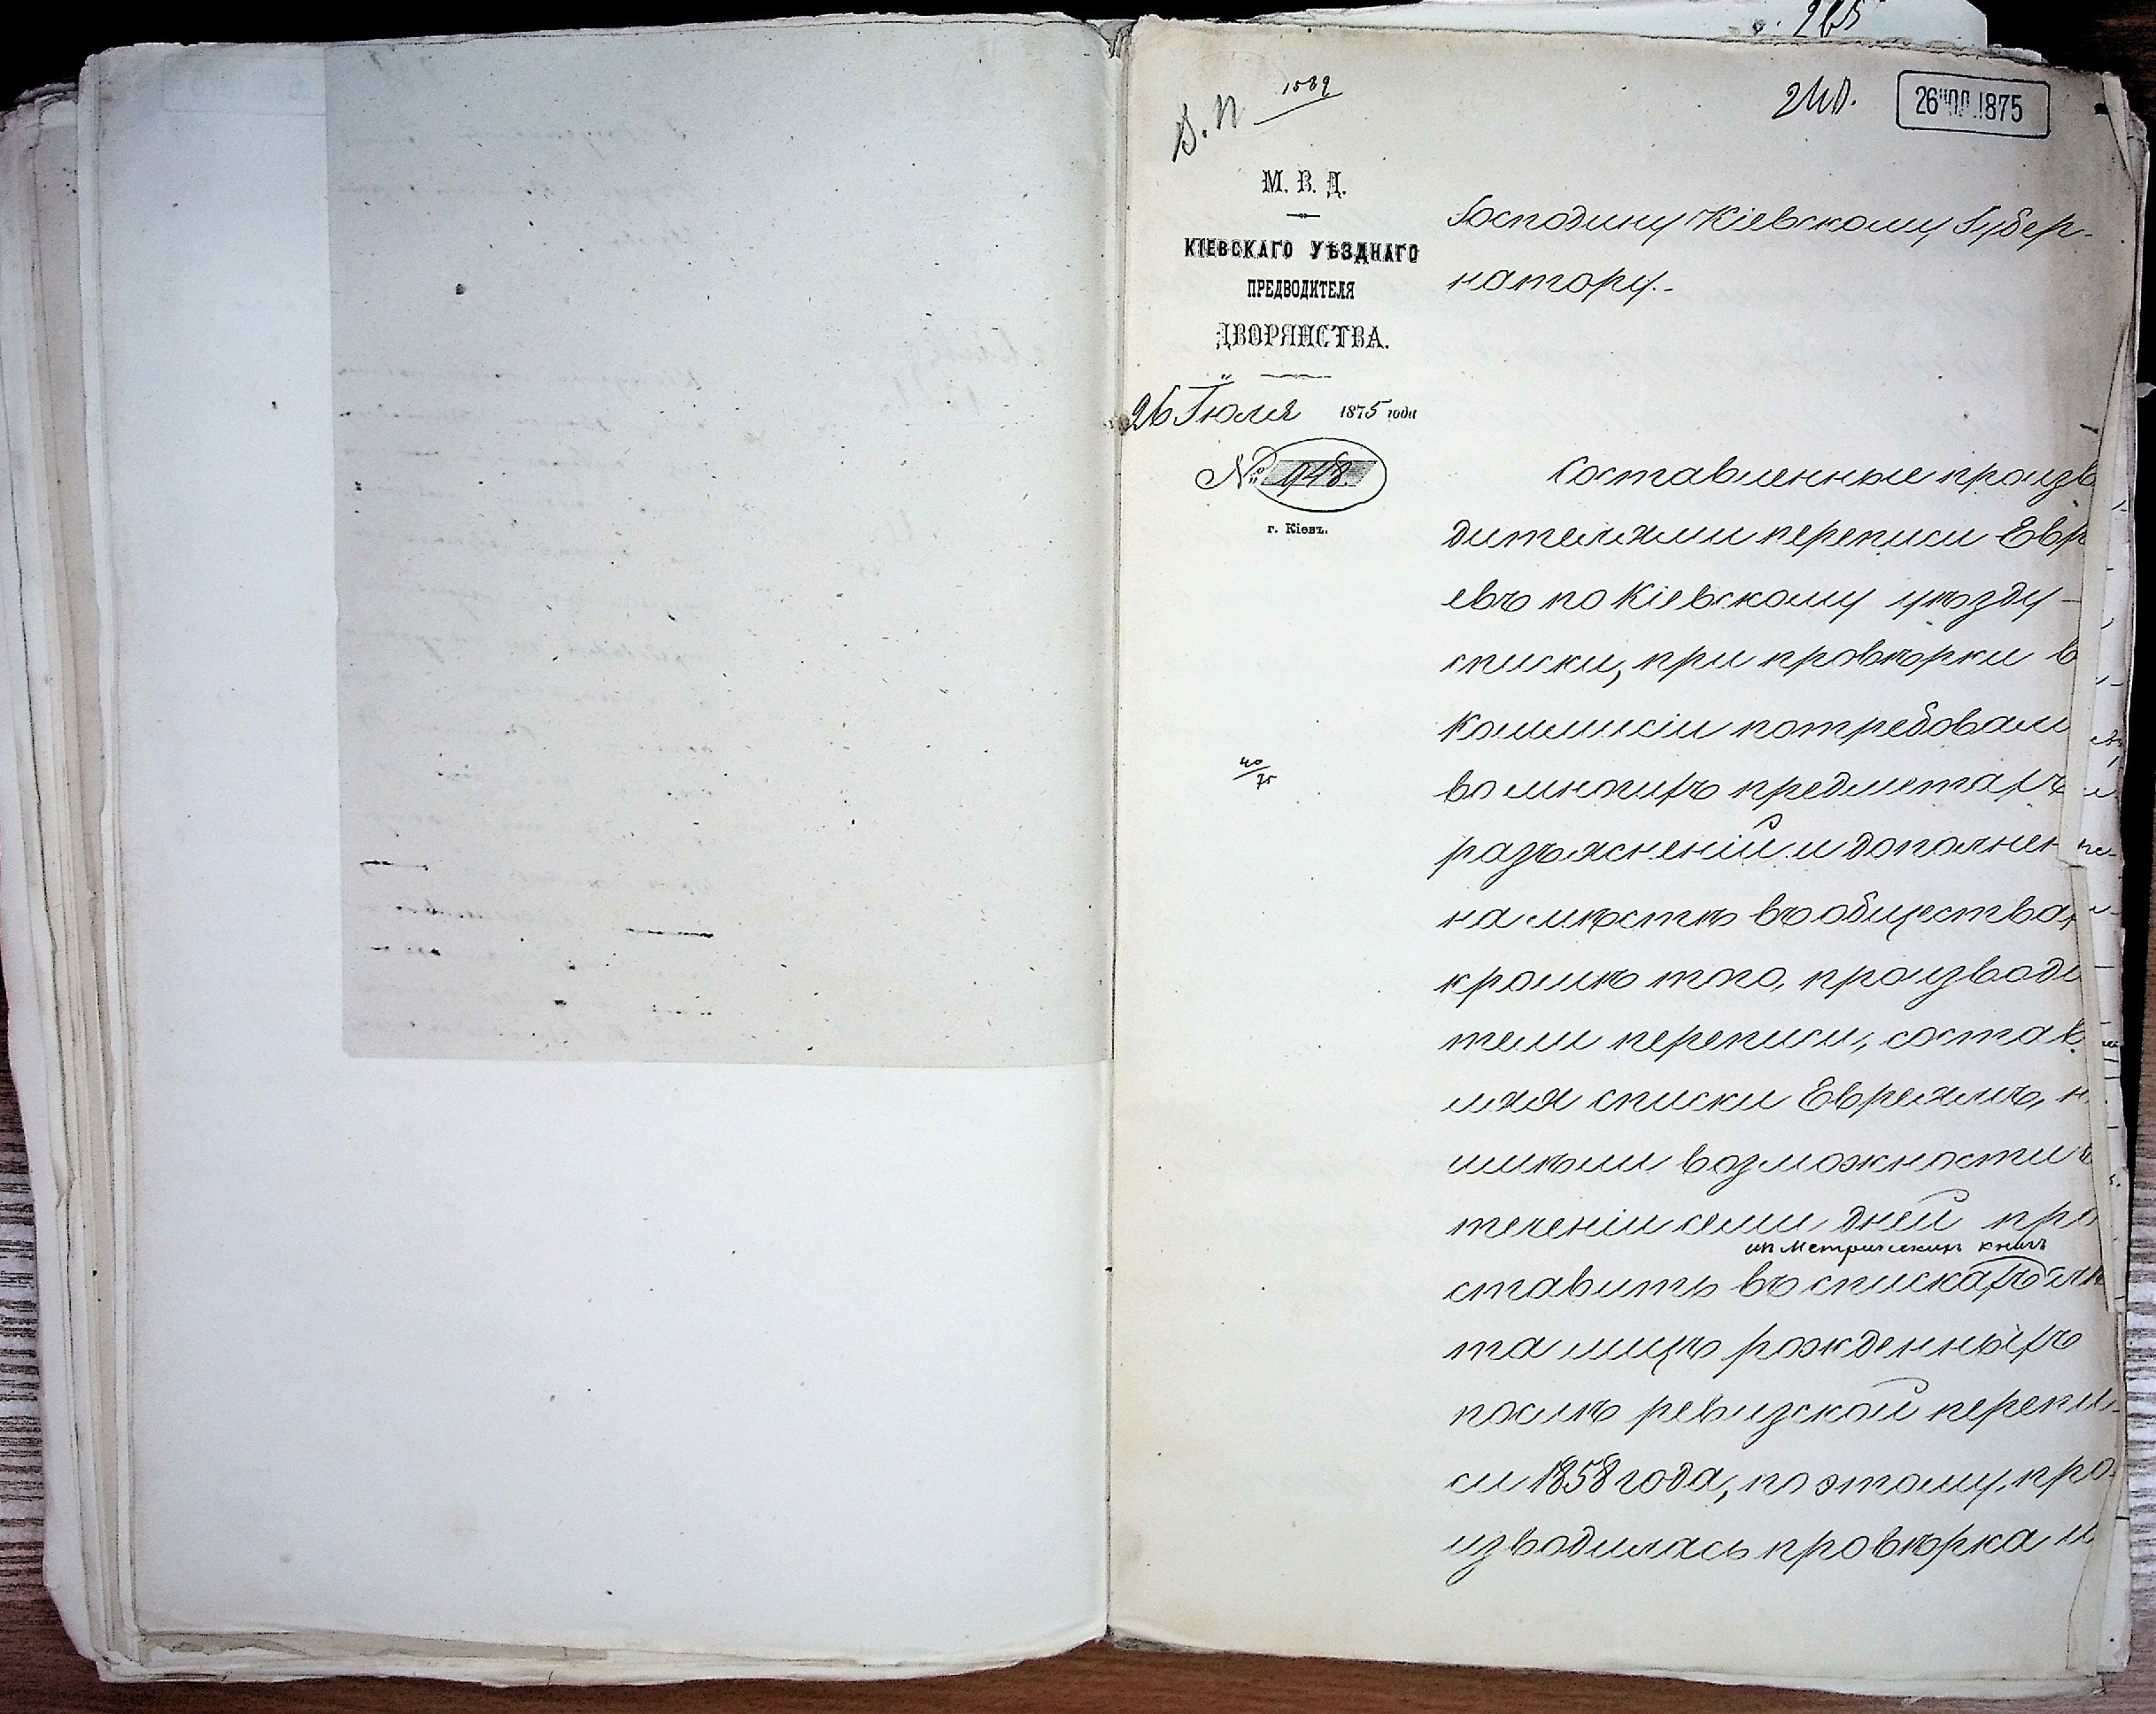 265
1589
240.
26 ИЮЛ. 1875
М. В. Д.
КІЕВСКАГО УѢЗДНАГО
ПРЕДВОДИТЕЛЯ
ДВОРЯНСТВА.
26 Іюля 1875 года
№ 948
г. Кіевъ.
40/75
Господину Кіевскому Губер-
натору.-
Составленные произв
дителями переписи Евр
евъ по Кіевскому уѣзду -
списки, при провѣрки в
Коммисіи потребовали
во многихъ предметахъ
разъясненій и дополнен
на мѣстѣ въ обществах
кромѣ того, производи
тели переписи, состав
ляя списки Евреямъ, н
имѣли возможности в
теченіи семи дней пр
изъ Метрическихъ книгъ
ставить въ спискахъ лѣ
та лицъ рожденныхъ
послѣ ревизской перепи-
си 1858 года, по этому, про-
изводилась провѣрка и